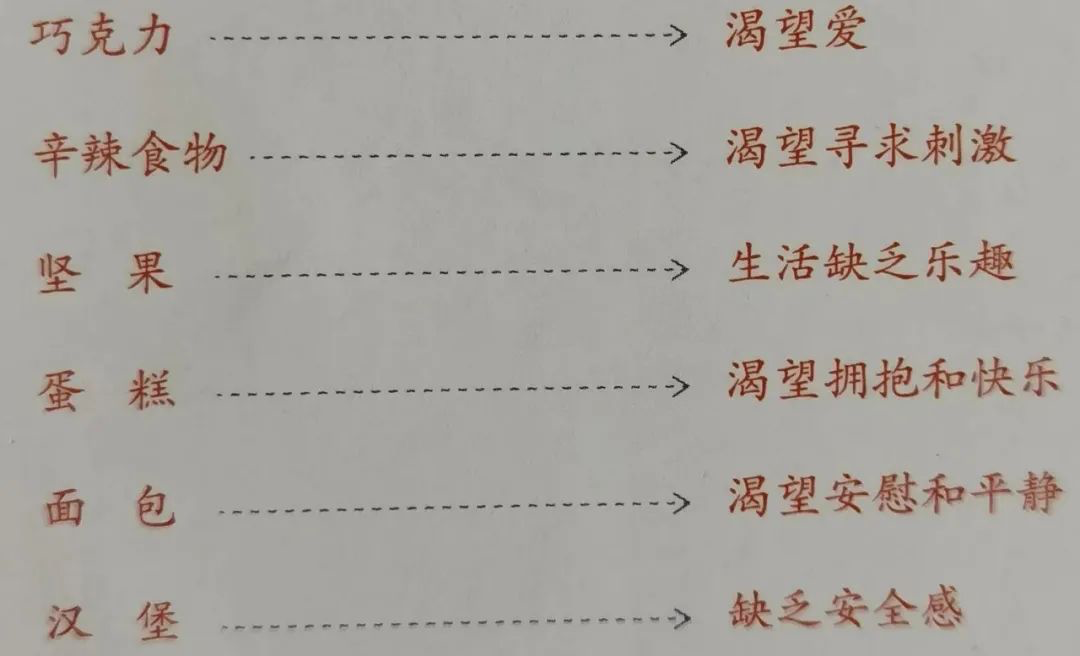 巧克力 渴望爱
辛辣食物 渴望寻求刺激
坚果 生活缺乏乐趣
蛋糕 渴望拥抱和快乐
面包 渴望安慰和平静
汉堡 缺乏安全感